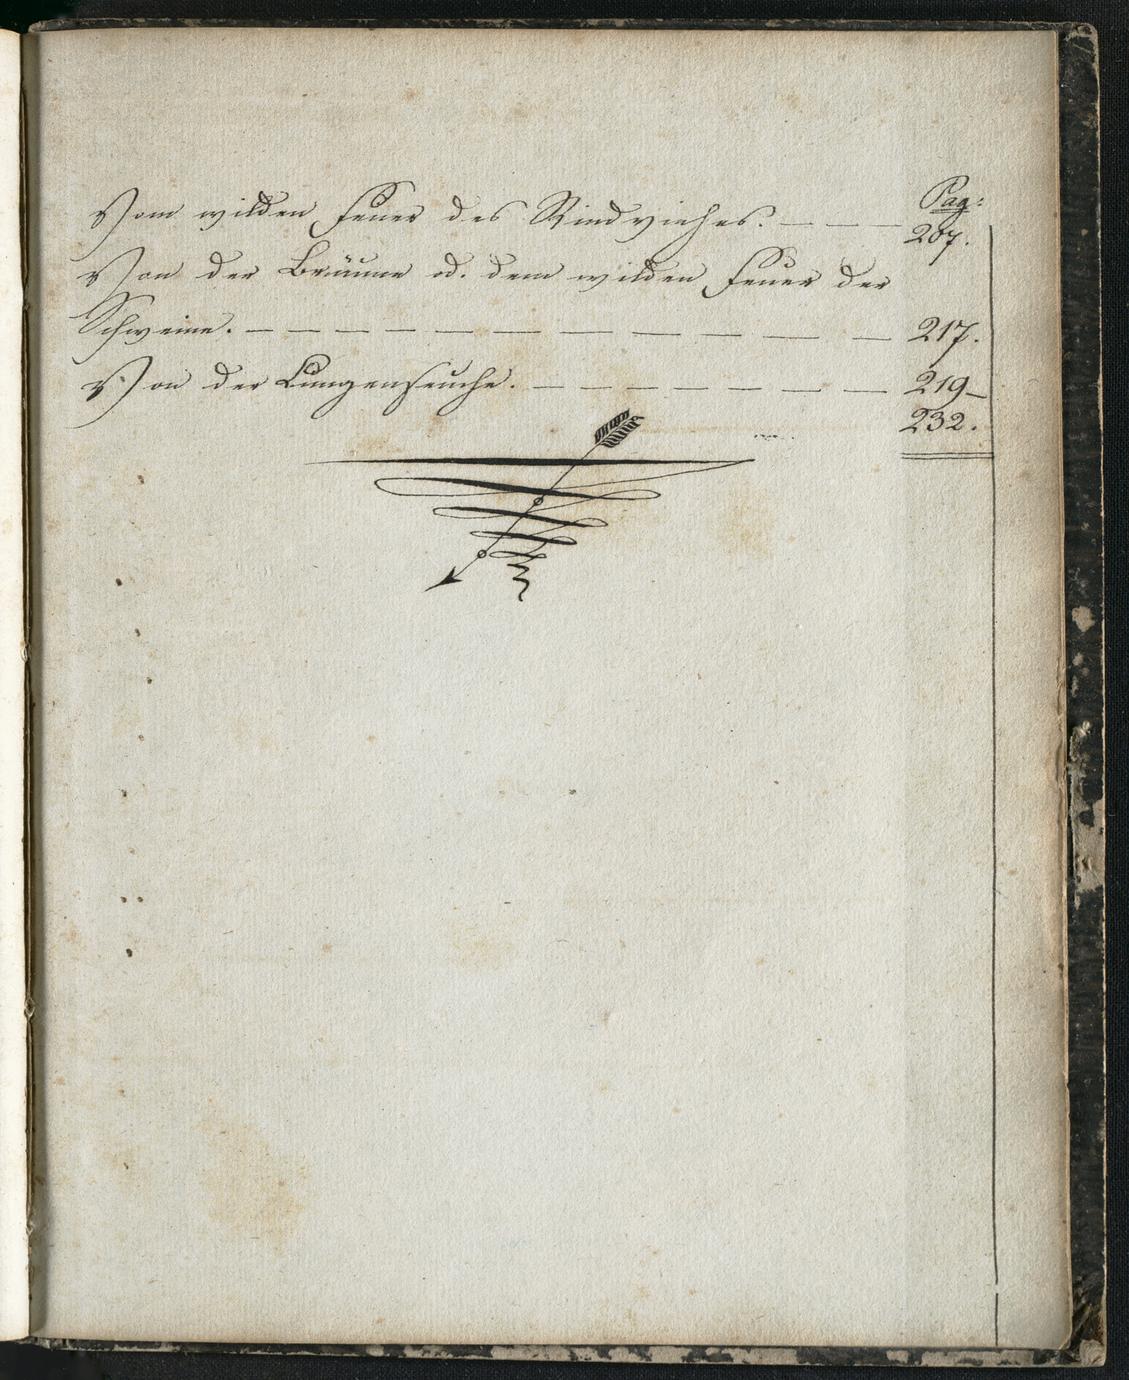 Pag:
Vom wilden Feuer des Rindviehes. — — — 207.
Von der Bräune od. dem wilden Feuer der
Schweine. — — — — — — — — — — 217.
Von der Lungenseuche. — — — — — — — 219–
232.